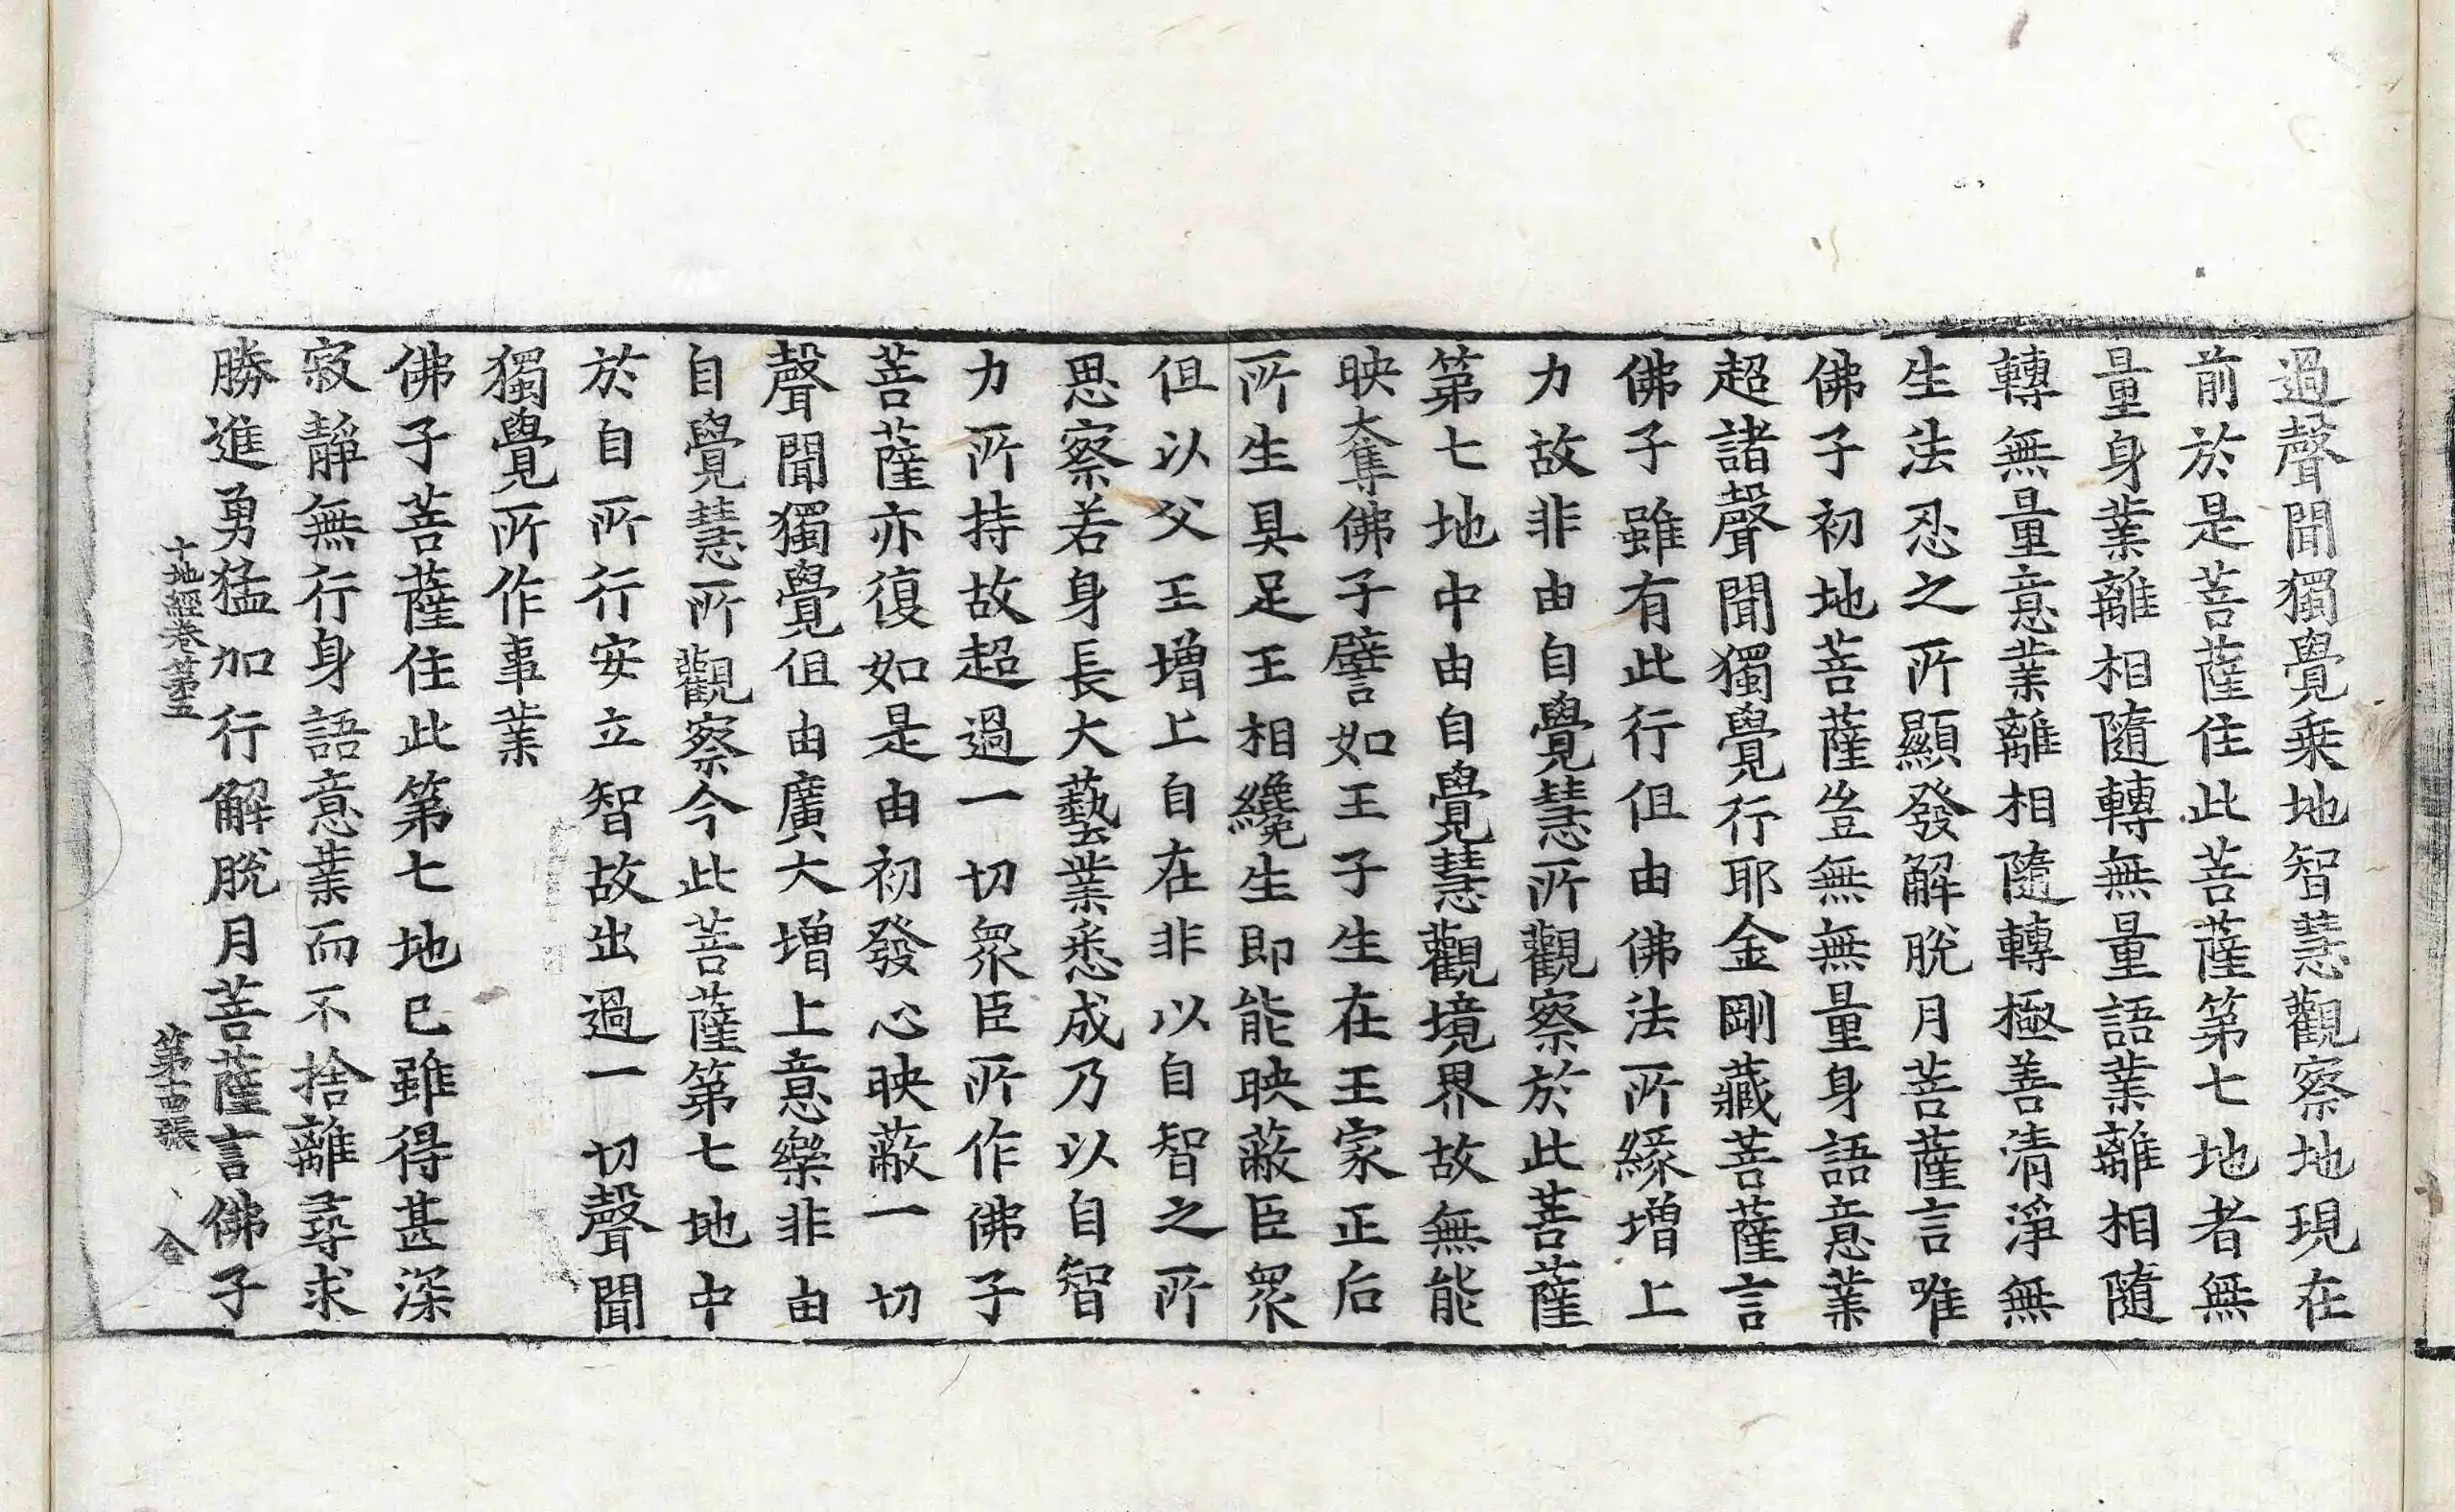 過聲聞獨覺乗地智慧觀察地現在
前於是菩薩住此菩薩第七地者無
量身業離相隨轉無量語業離相隨
轉無量意業離相隨轉極善清淨無
生法忍之所顯發解脫月菩薩言唯
佛子初地菩薩豈無無量身語意業
超諸聲聞獨覺行耶金剛藏菩薩言
佛子雖有此行但由佛法所緣增上
力故非由自覺慧所觀察於此菩薩
第七地中由自覺慧觀境界故無能
映奪佛子譬如王子生在王家正后
所生具足王相纔生即能映蔽臣衆
但以父王增上自在非以自智之所
思察若身長大藝業悉成乃以自智
力所持故超過一切衆臣所作佛子
菩薩亦復如是由初發心映蔽一切
聲聞獨覺但由廣大增上意樂非由
自覺慧所觀察今此菩薩第七地中
於自所行安立智故出過一切聲聞
獨覺所作事業
佛子菩薩住此第七地已雖得甚深
寂靜無行身語意業而不捨離尋求
勝進勇猛加行解脫月菩薩言佛子
十地經卷第五　第十四張　合